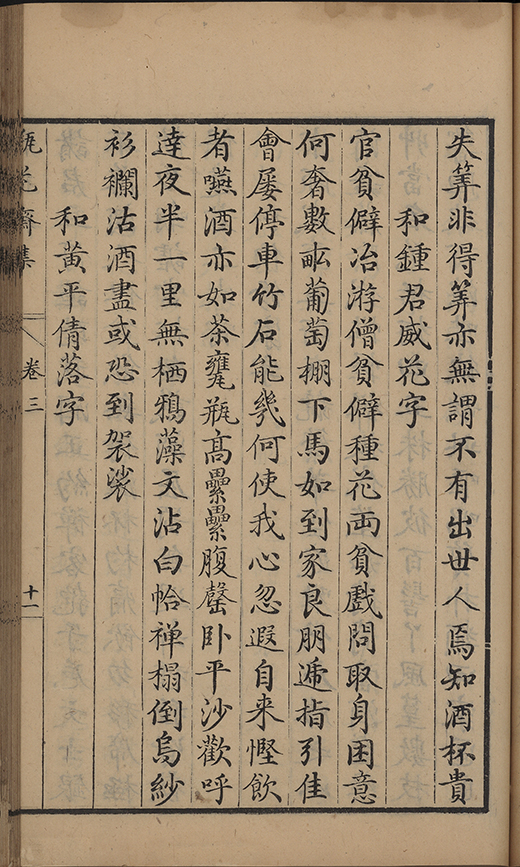 失筭非得筭亦無謂不有出世人焉知酒杯貴
和鍾君威花字
官貧僻冶游僧貧僻種花両貧戲問取身困意
何奢數畝葡萄棚下馬如到家良朋遞指引佳
會屡停車竹石能幾何使我心忽遐自来慳飲
者嚥酒亦如茶甕瓶高纍纍腹罄卧平沙歡呼
達夜半一里無栖鴉藻文沾白帢禅榻倒烏紗
衫襴沽酒盡或恐到袈裟
和黄平倩落字
瓶花齋集
卷三
十一